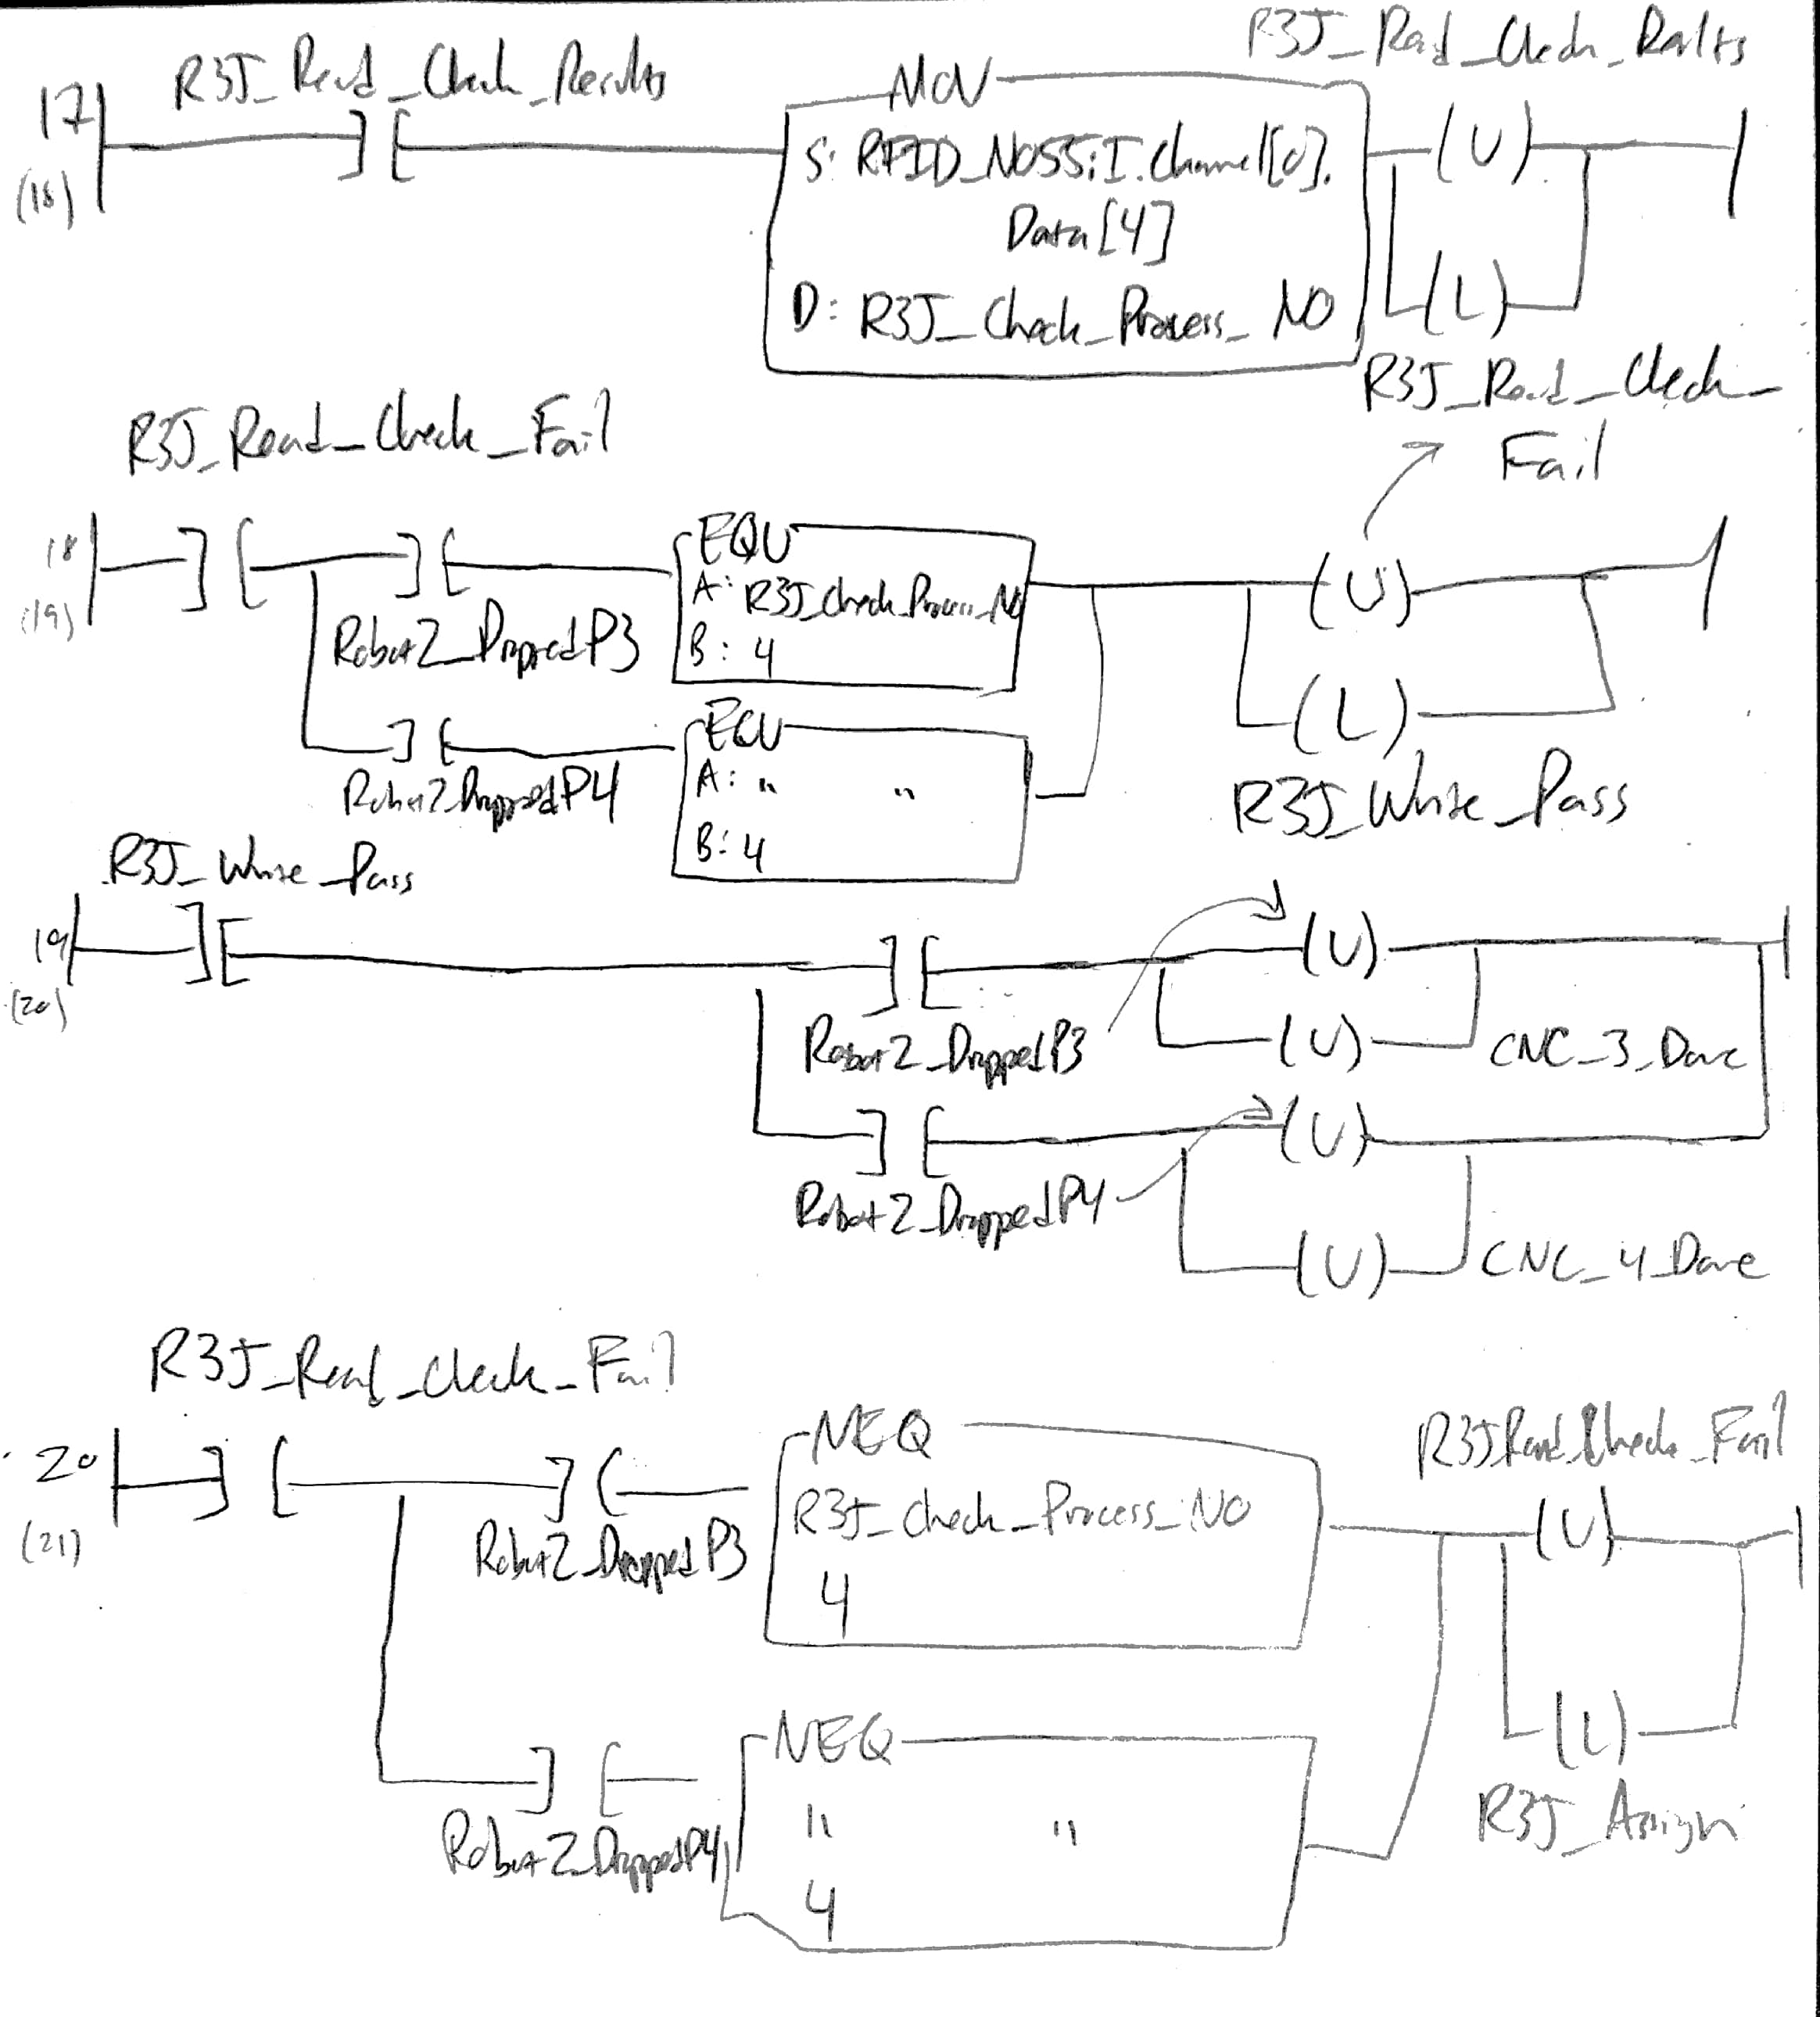 R3J_Read_Check_Results
17
(18)
]  [
MOV
S: RFID_NO55:I.Channel[0].
Data[4]
D: R3J_Check_Process_NO
R3J_Read_Check_Results
(U)
(L)
R3J_Read_Check_
Fail
R3J_Read_Check_Fail
18
(19)
]  [
]  [
Robot2_DroppedP3
EQU
A: R3J_Check_Process_NO
B: 4
]  [
Robot2_DroppedP4
EQU
A: " "
B: 4
(U)
(L)
R3J_Write_Pass
R3J_Write_Pass
19
(20)
]  [
]  [
Robot2_DroppedP3
(U)
(U)
CNC_3_Done
]  [
Robot2_DroppedP4
(U)
(U)
CNC_4_Done
R3J_Read_Check_Fail
20
(21)
]  [
]  [
Robot2_DroppedP3
NEQ
R3J_Check_Process_NO
4
]  [
Robot2_DroppedP4
NEQ
" "
4
R3J_Read_Check_Fail
(U)
(L)
R3J_Assign